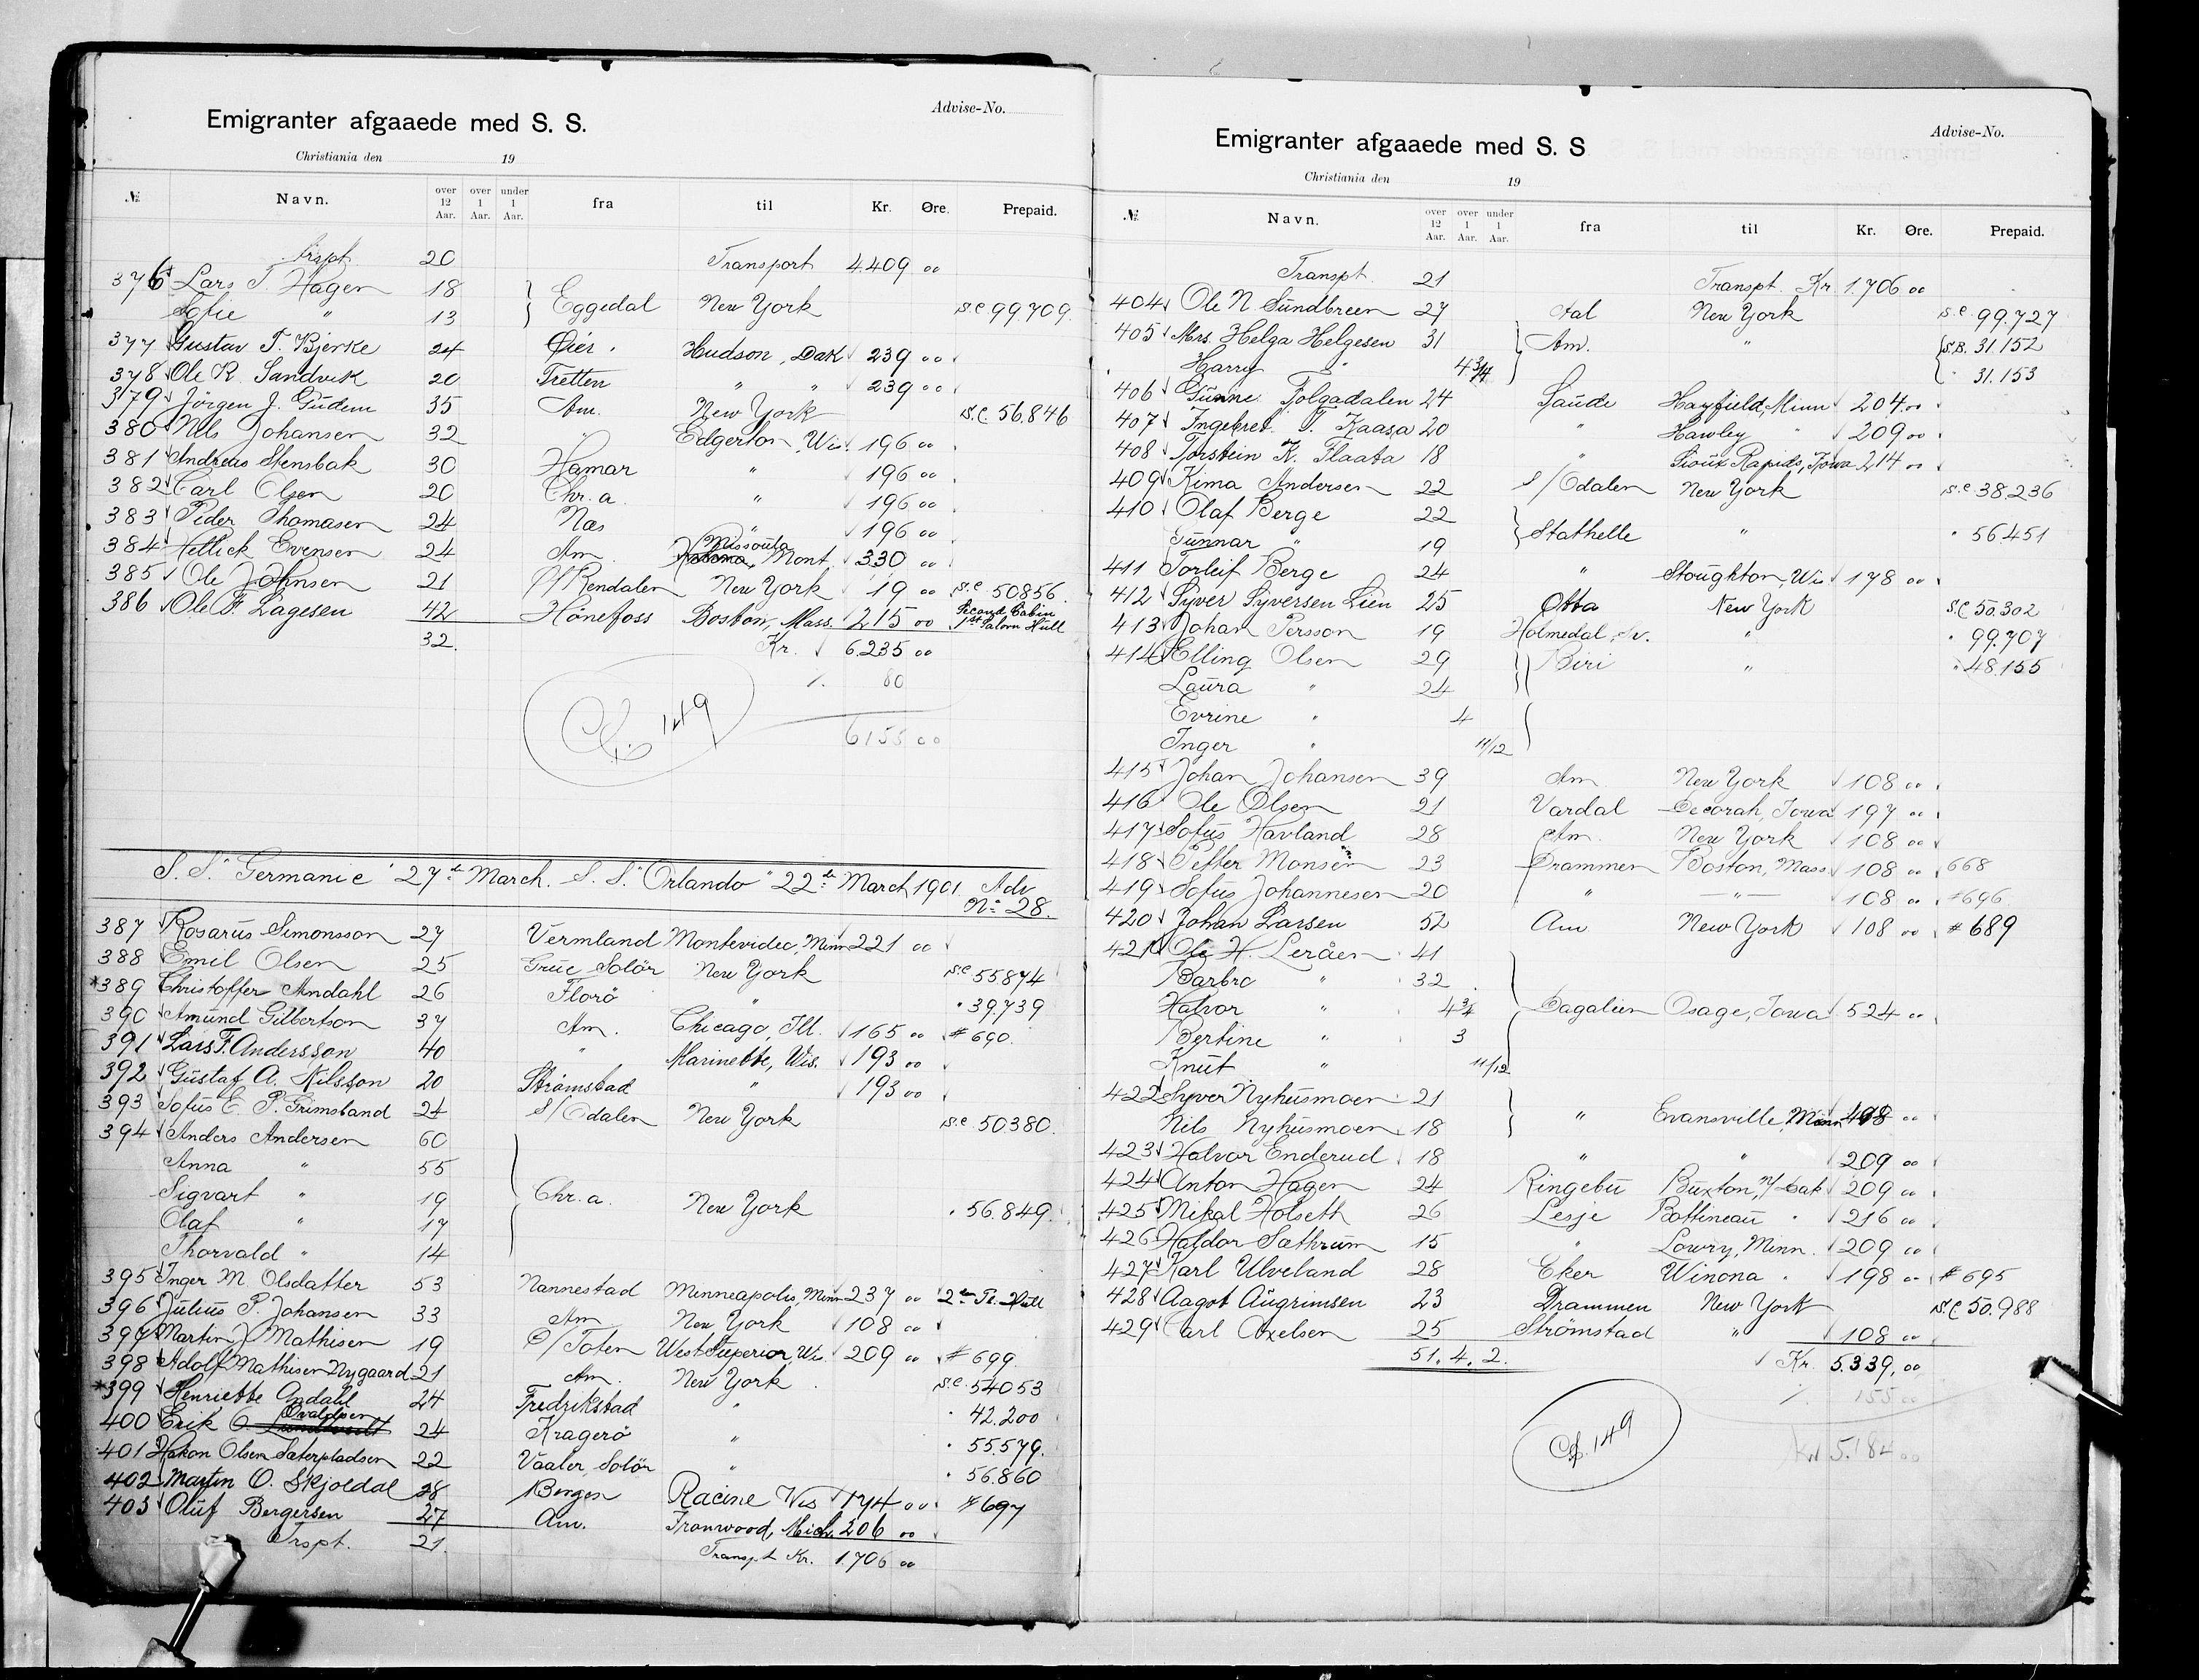 Emigranter afgaaede med S. S.
Advise-No.
Christiania den 19
№ Navn. over 12 Aar. over 1 Aar. under 1 Aar. fra til Kr. Øre. Prepaid.
Trspt. 20 Transport 4.409 00
376 Lars T. Hagen 18 Eggedal New York s.c. 99.709
Sofie " 13
377 Gustav T. Bjerke 24 Øier. Hudson, Dak 239 00
378 Ole R. Sandvik 20 Tretten " " 239 00
379 Jörgen J. Gudem 35 Am. New York s.c. 56.846
380 Nils Johansen 32 " Edgerton, Wis. 196 00
381 Andreas Stensbak 30 Hamar " 196 00
382 Carl Olsen 20 Chr.a. " 196 00
383 Peder Thomasen 24 Næs " 196 00
384 Hellick Evensen 24 Am Missoula Mont. 330 00
385 Ole Johnsen 21 Ø/Rendalen New York 19 00 s.c. 50856
386 Ole F. Lagesen 42 Hönefoss Boston, Mass. 215 00 Second Cabin 1st Saloon Hull
32. Kr. 6.235 00
%. 80
149
6155 00
S. S. "Germanic" 27de March. S. S. "Orlando" 22de March 1901. Adv. No. 28.
387 Rosarus Simonsson 27 Vermland Montevideo, Minn 221 00
388 Emil Olsen 25 Grue Solör New York s.c. 55874
*389 Christoffer Andahl 26 Florö " " 39.739
390 Amund Gilbertson 37 Am. Chicago, Ill. 165 00 # 690.
391 Lars F. Andersson 40 " Marinette, Wis. 193 00
392 Gustaf A. Nilsson 20 Strömstad " 193 00
393 Sofus E. P. Grimstand 24 S/Odalen New York s.c. 50380.
394 Anders Andersen 60
Anna " 55
Sigvart " 19 Chr.a. New York " 56.849
Olaf " 17
Thorvald " 14
395 Inger M. Olsdatter 53 Nannestad Minneapolis, Minn 237 00 2de Pl. Hull
396 Julius P. Johansen 33 Am New York 108 00
397 Martin J. Mathisen 19 Ø/Toten West Superior, Wis. 209 00 # 699.
398 Adolf Mathisen Nygaard 21 Am. New York s.c. 54053
*399 Henriette Andahl 24 Fredrikstad " " 42.200
400 Erik O Ovaldsen 24 Kragerö " " 55.579.
401 Hakon Olsen Saterpladsen 22 Vaaler, Solör " " 56.860
402 Martin O. Skjoldal 28 Bergen Racine Wis 174 00 # 697
403 Oluf Bergersen 27 Am. Ironwood, Mich. 206 00
Trspt. 21. Transpt Kr. 1.706 00
Emigranter afgaaede med S. S
Advise-No.
Christiania den 19
№ Navn. over 12 Aar. over 1 Aar. under 1 Aar. fra til Kr. Øre. Prepaid.
Transpt. 21 Transpt. Kr. 1.706 00
404 Ole N. Sundbreen 27 Aal New York s.c. 99.727
405 Mrs. Helga Helgesen 31 Am. " S.B. 31.152
Harry " 4 3/4 " 31.153
406 Gunne Folgadalen 24 Saude Hayfield, Minn 204 00
407 Ingebret T. Kaasa 20 " Hawley " 209 00
408 Torstein K. Flaata 18 " Sioux Rapids, Iowa 214 00
409 Kima Andersen 22 S/Odalen New York s.c. 38.236
410 Olaf Berge 22 Stathelle " " 56451
Gunnar " 19
411 Torleif Berge 24 " Stoughton, Wis 178 00
412 Syver Syversen Lien 25 Otta New York s.c. 50.302
413 Johan Persson 19 Holmedal, Sv. " " 99.707
414 Elling Olsen 29 Biri " " 48.155
Laura " 24
Evrine " 4
Inger " 11/12
415 Johan Johansen 39 Am New York 108 00
416 Ole Olsen 21 Vardal Decorah, Iowa 197 00
417 Sofus Havland 28 Am. New York 108 00
418 Petter Monsen 23 Drammen Boston, Mass 108 00 668
419 Sofus Johannesen 20 " " 108 00 # 696
420 Johan Larsen 52 Am New York 108 00 # 689
421 Ole H. Leråen 41
Barbro " 32
Halvor " 4 3/4 Dagalien Osage, Iowa 524 00
Bertine " 3
Knut " 11/12
422 Syver Nyhusmoen 21 " Evansville, Minn 498 00
Nils Nyhusmoen 18
423 Halvor Enderud 18 " " 209 00
424 Anton Hagen 24 Ringebu Buxton, N/Dak 209 00
425 Mikal Holseth 26 Lesje Bottineau " 216 00
426 Haldor Sæthrum 15 " Lowry, Minn. 209 00
427 Karl Ulveland 28 Eker Winona " 198 00 # 695
428 Aagot Augrimsen 23 Drammen New York s.c. 50.988
429 Carl Axelsen 25 Strömstad " 108 00
51. 4. 2. Kr. 5.339,00
%. 155 00
149
Kr 5.184 00